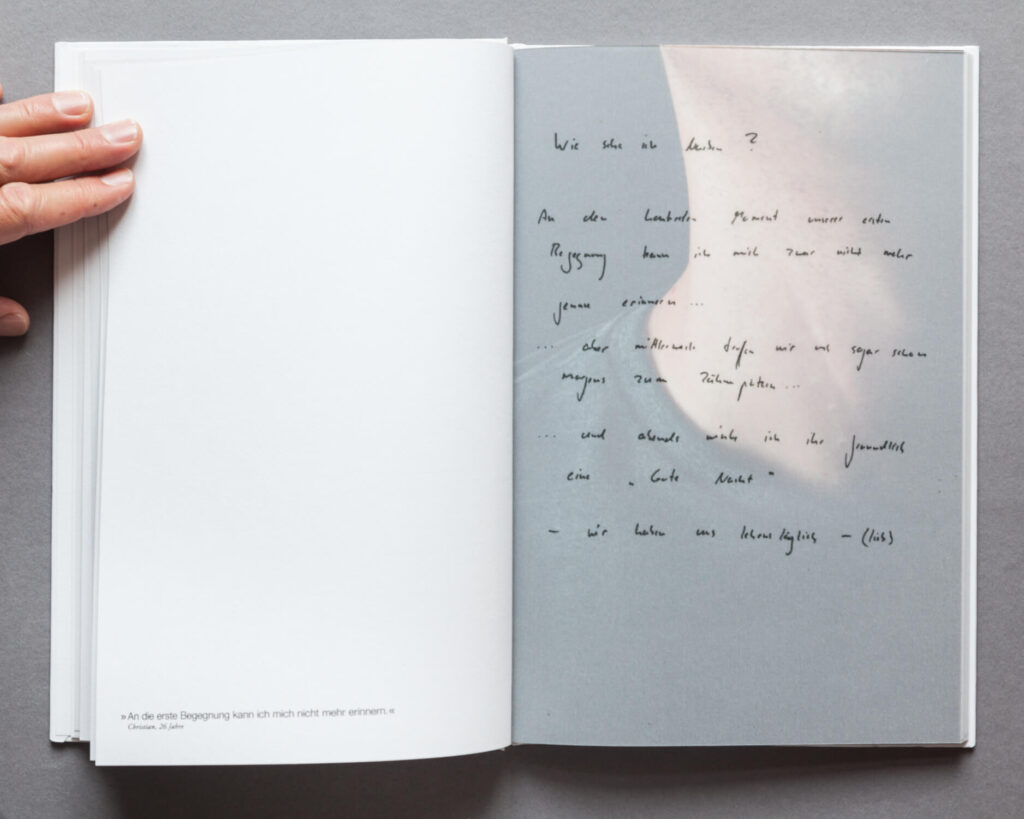 »An die erste Begegnung kann ich mich nicht mehr erinnern.«
Christian, 26 Jahre
Wie sehe ich Narben ?
An den konkreten Moment unserer ersten
Begegnung kann ich mich zwar nicht mehr
genau erinnern ...
... aber mittlerweile treffen wir uns sogar schon
morgens zum Zähneputzen ...
... und abends wünsche ich ihr freundlich
eine „Gute Nacht"
- wir haben uns lebenslänglich - (lieb)